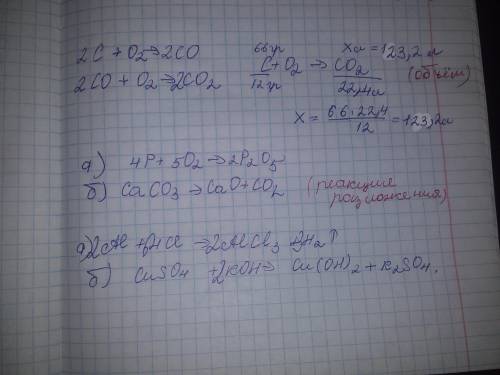 2C + O2 → 2CO
2CO + O2 → 2CO2
66гр Xл = 123,2 л
C + O2 → CO2 (объём)
12гр 22,4л
X = 66·22,4 / 12 = 123,2л
а) 4P + 5O2 → 2P2O5
б) CaCO3 → CaO + CO2 (реакция разложения)
а) 2Al + HCl → 2AlCl3 + H2↑
б) CuSO4 + 2KOH → Cu(OH)2 + K2SO4.